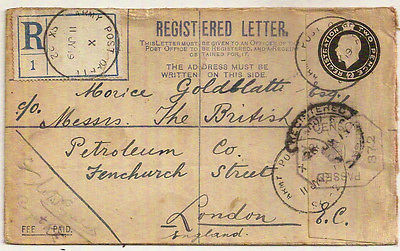 REGISTERED LETTER.
THIS LETTER MUST BE GIVEN TO AN OFFICER OF THE POST
OFFICE TO BE REGISTERED, AND A RECEIPT
OBTAINED FOR IT.
THE ADDRESS MUST BE
WRITTEN ON THIS SIDE.
REGISTRATION TWO PENCE
R
1
ARMY POST OFFICE
X
11 JY 19
SX 2
Morice Goldblatt Esq.,
c/o Messrs. The British
Petroleum Co.
Fenchurch Street
London
E.C.
England.
ARMY POST
REGISTERED
PASSED
372
FEE PAID.